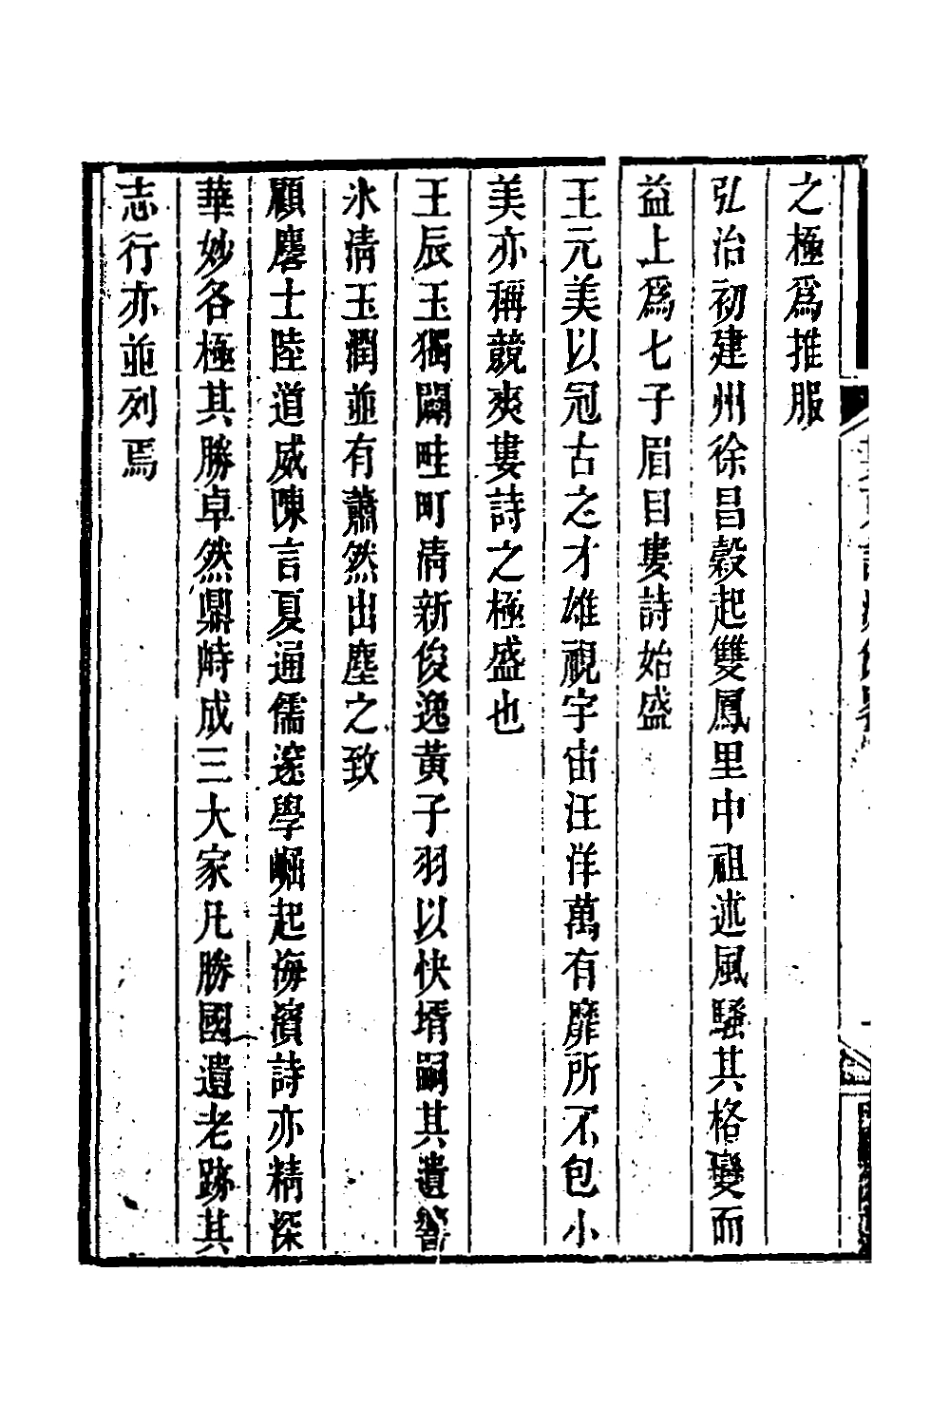 之極爲推服
弘治初建州徐昌穀起雙鳳里中祖述風騷其格變而
益上爲七子眉目婁詩始盛
王元美以冠古之才雄視宇宙汪洋萬有靡所不包小
美亦稱競爽婁詩之極盛也
王辰玉獨闢畦町清新俊逸黃子羽以快壻嗣其遺響
氷清玉潤並有蕭然出塵之致
顧麐士陸道威陳言夏通儒邃學崛起海濱詩亦精深
華妙各極其勝卓然鼎峙成三大家凡勝國遺老跡其
志行亦並列焉